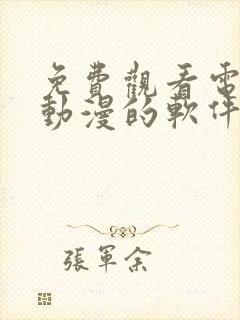 免費觀看電
動漫的軟件
張軍余